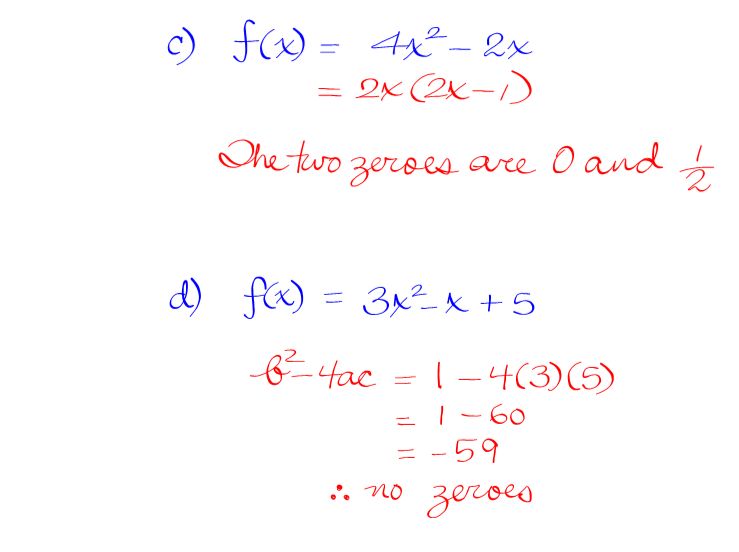 c) f(x) = 4x² - 2x
= 2x(2x-1)
The two zeroes are 0 and 1/2
d) f(x) = 3x² - x + 5
b² - 4ac = 1 - 4(3)(5)
= 1 - 60
= -59
∴ no zeroes